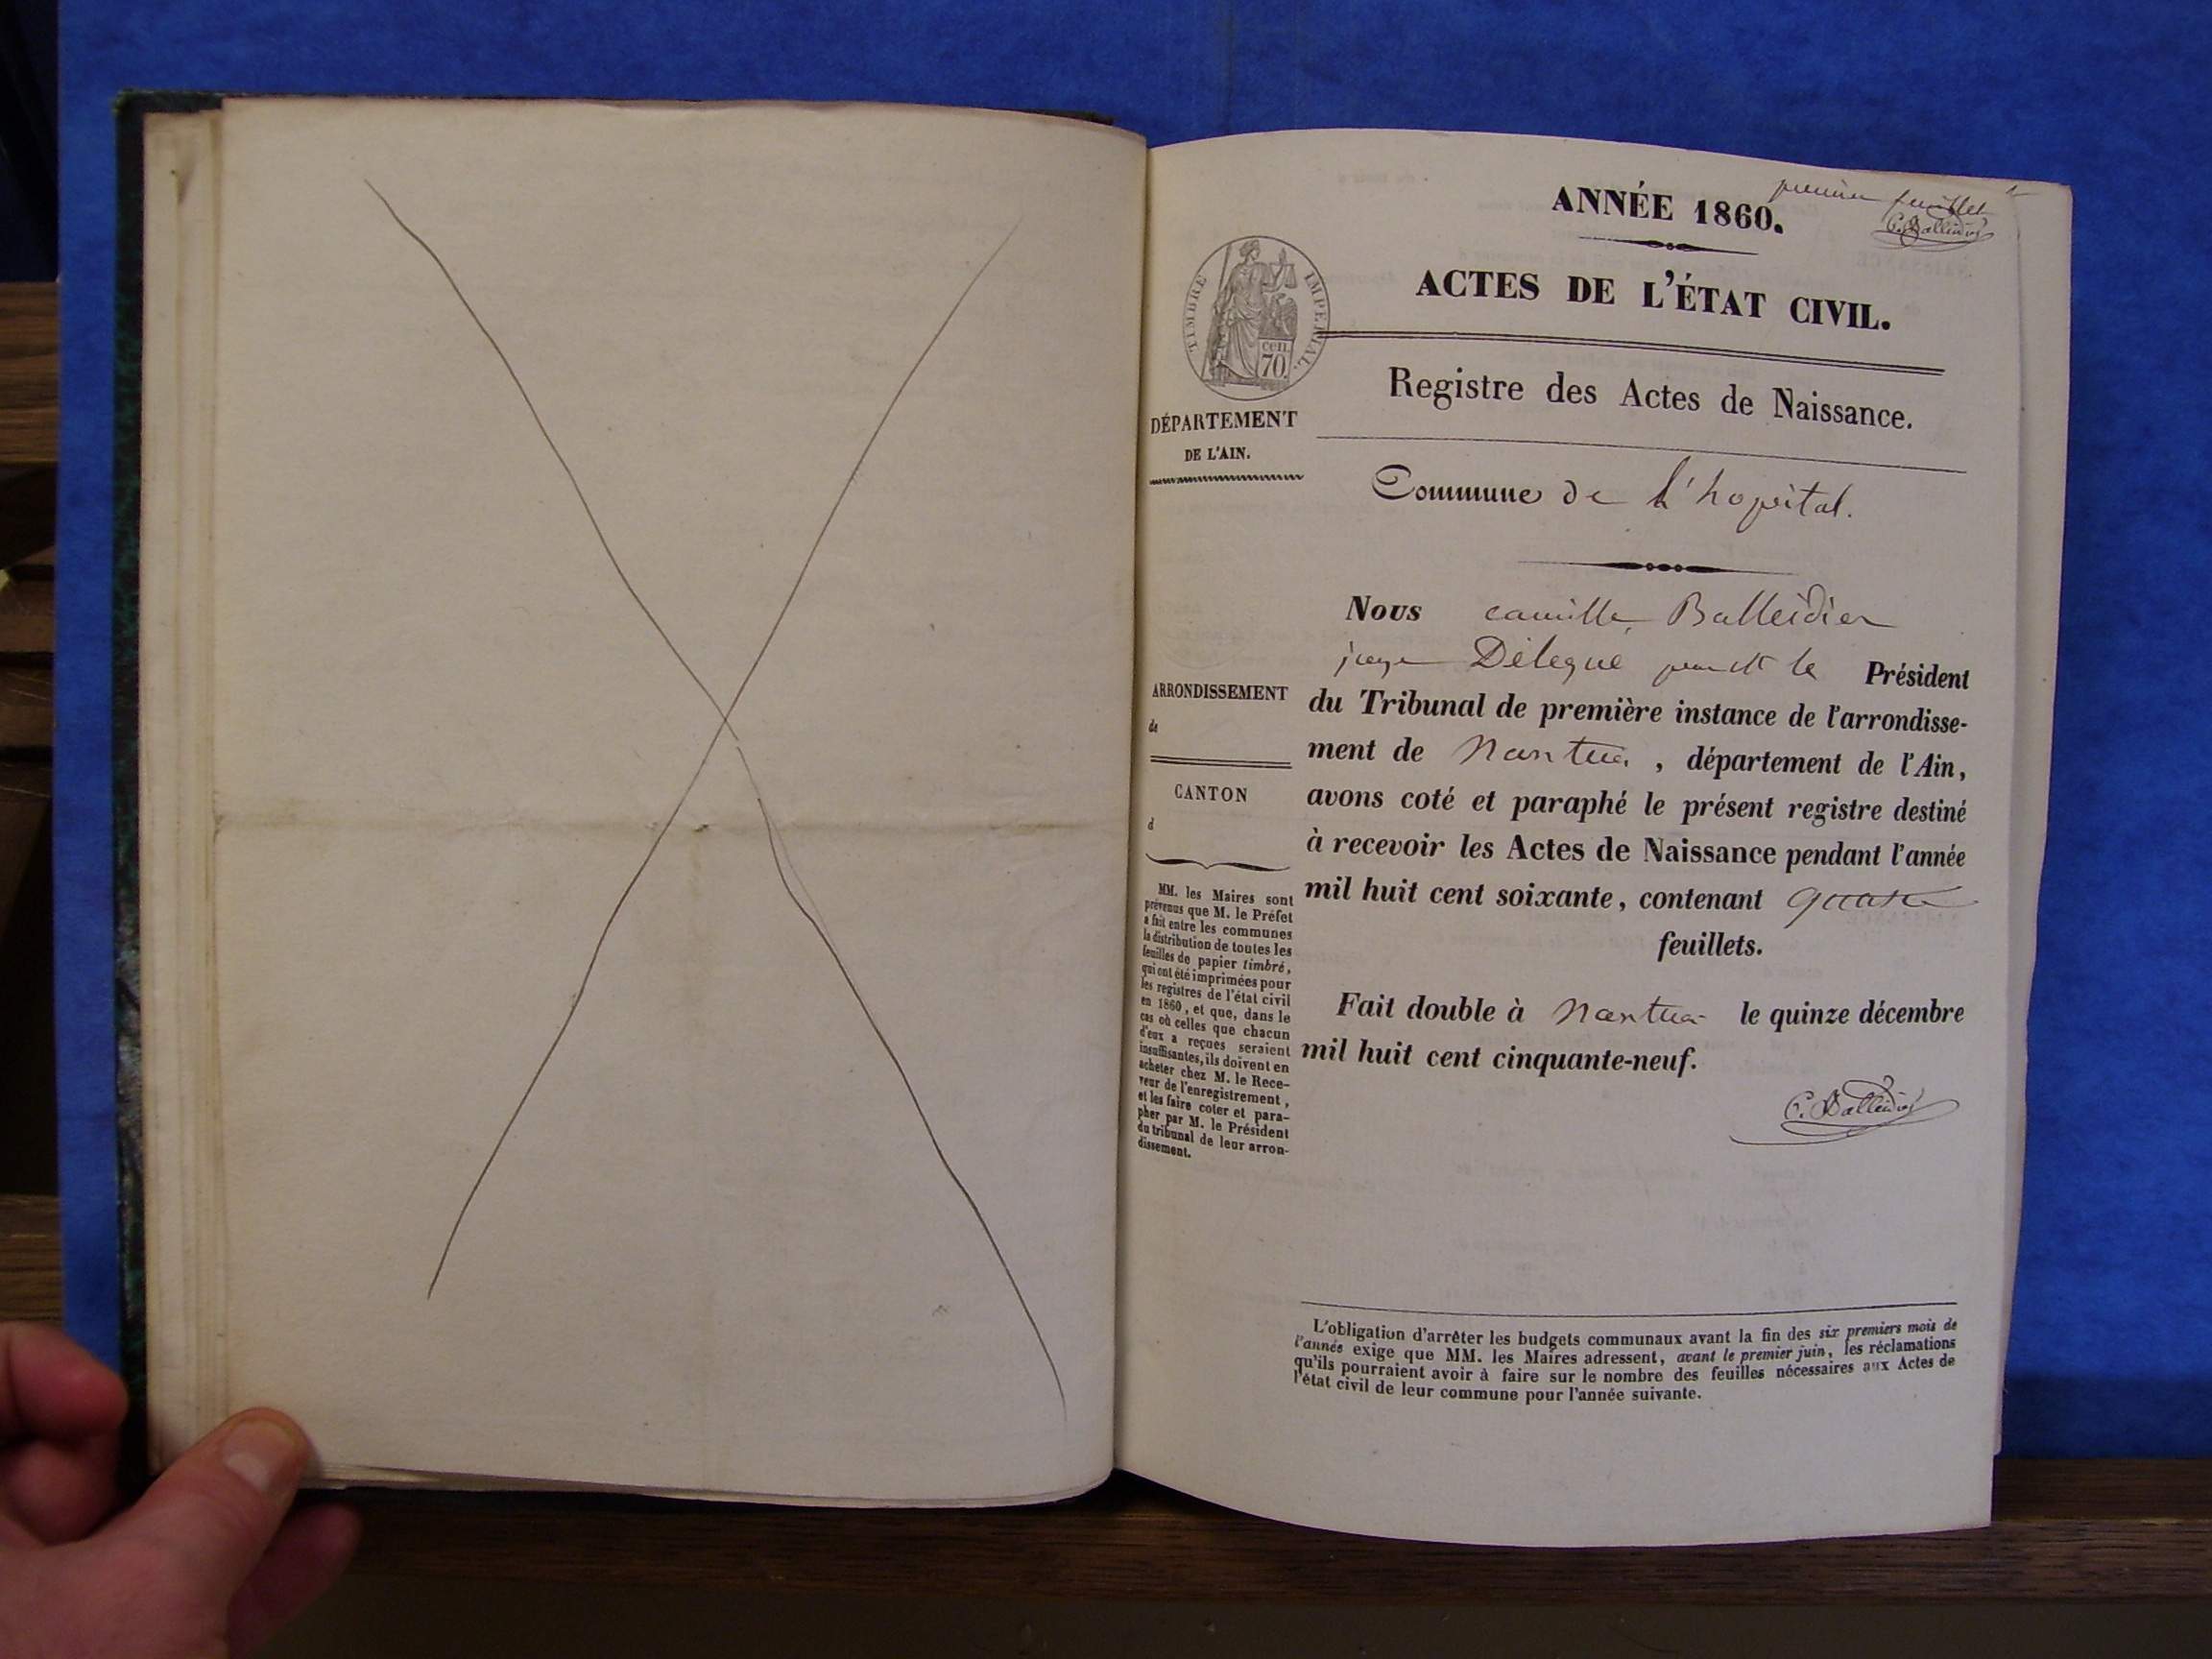 premier feuillet
C. Balleidier
ANNÉE 1860.
ACTES DE L'ÉTAT CIVIL.
TIMBRE IMPÉRIAL.
cen.
70.
Registre des Actes de Naissance.
DÉPARTEMENT
DE L'AIN.
Commune de L'hopital.
Nous camille Balleidier
juge Délégué par Mr le Président
du Tribunal de première instance de l'arrondisse-
ment de Nantua, département de l'Ain,
avons coté et paraphé le présent registre destiné
à recevoir les Actes de Naissance pendant l'année
mil huit cent soixante, contenant quatre
feuillets.
Fait double à Nantua le quinze décembre
mil huit cent cinquante-neuf.
C. Balleidier
ARRONDISSEMENT
de
CANTON
d
MM. les Maires sont
prévenus que M. le Préfet
a fait entre les communes
la distribution de toutes les
feuilles de papier timbré,
qui ont été imprimées pour
les registres de l'état civil
en 1860, et que, dans le
cas où celles que chacun
d'eux a reçues seraient
insuffisantes, ils doivent en
acheter chez M. le Rece-
veur de l'enregistrement,
et les faire coter et para-
pher par M. le Président
du tribunal de leur arron-
dissement.
L'obligation d'arrêter les budgets communaux avant la fin des six premiers mois de
l'année exige que MM. les Maires adressent, avant le premier juin, les réclamations
qu'ils pourraient avoir à faire sur le nombre des feuilles nécessaires aux Actes de
l'état civil de leur commune pour l'année suivante.